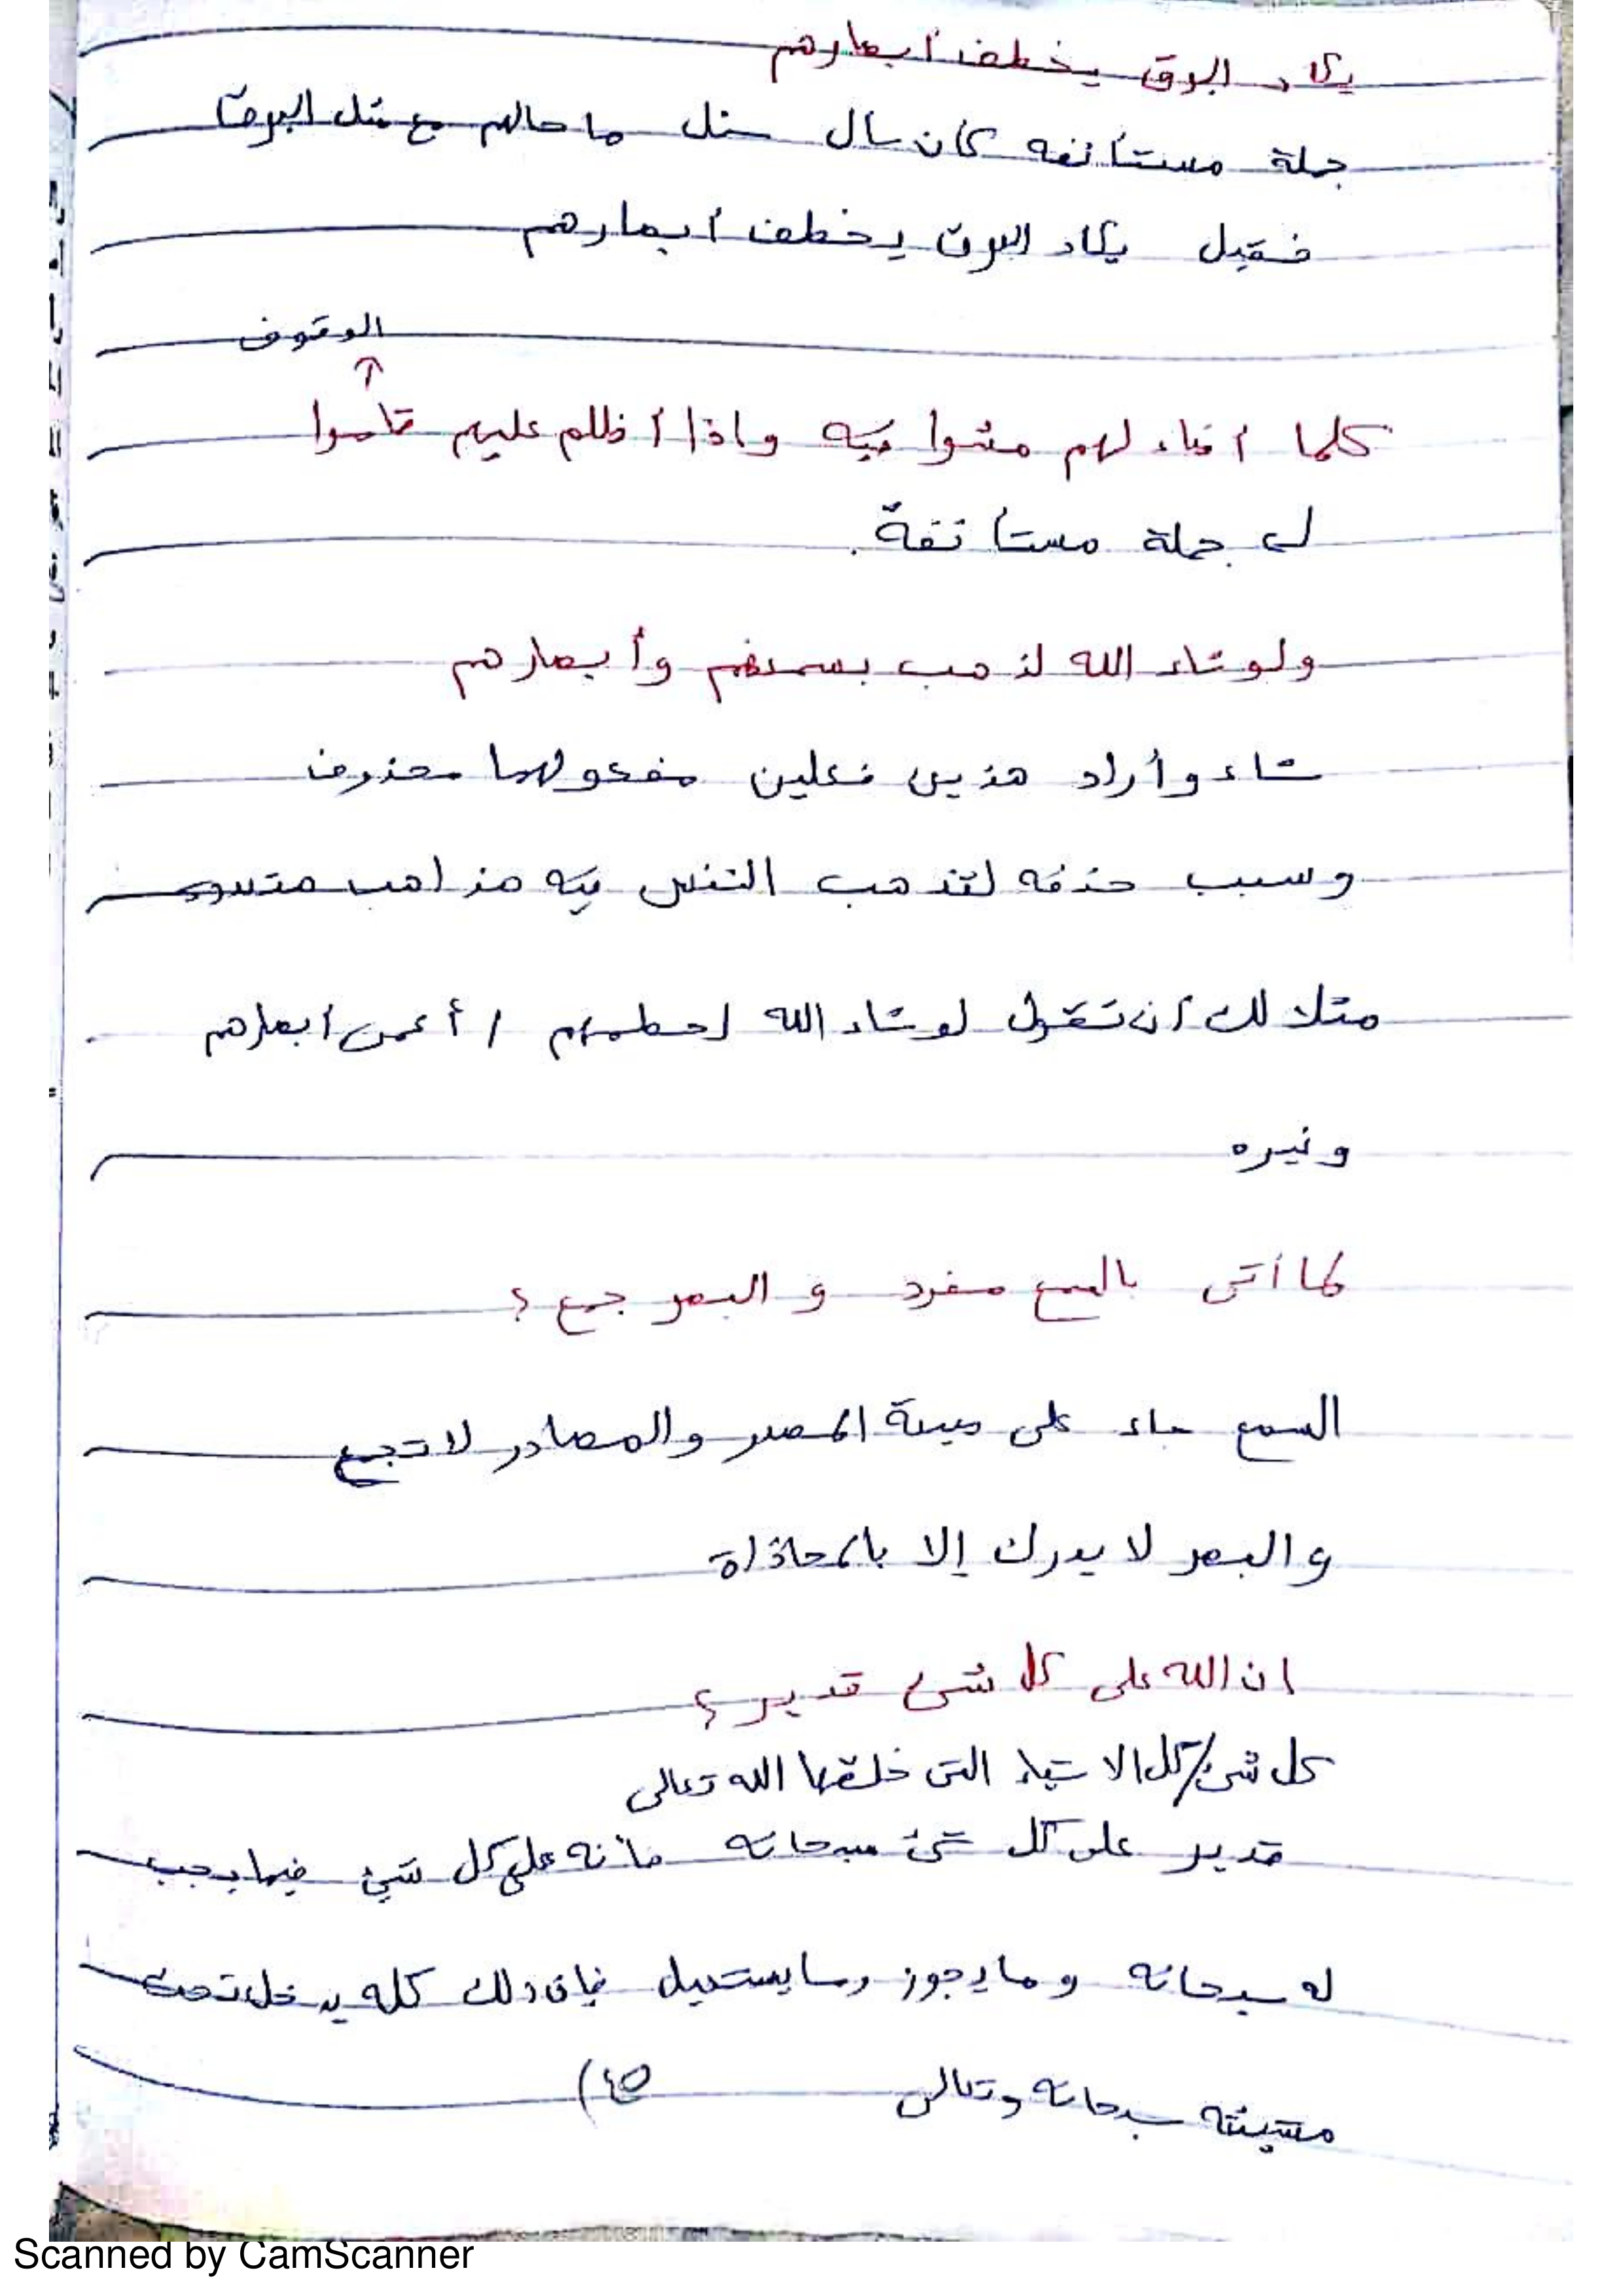 يكاد البرق يخطف أبصارهم
جملة مستأنفه كأن سأل سئل ما حالهم مع مثل البرق
فقيل يكاد البرق يخطف أبصارهم
الوقوف
كلما أضاء لهم مشوا فيه واذا أظلم عليهم قاموا
جملة مستأنفة.
ولو شاء الله لذهب بسمعهم وأبصارهم
شاء وأراد هذين فعلين مفعولهما محذوف
وسبب حذفه لتذهب النفس فيه مذاهب
مثلا لك أن تقول لو شاء الله لحطمهم / أعمى أبصارهم
وغيره
لما أتى بالسمع مفرد و البصر جمع ؟
السمع جاء على صيغة المصدر والمصادر لا تجمع
و البصر لا يدرك إلا بالمحاذاة
ان الله على كل شئ قدير ؟
كل شئ / كل الاشياء التى خلقها الله تعالى
قدير على كل شئ سبحانه على كل شئ فيما يجب
له سبحانه وما يجوز وما يستحيل فإن ذلك كله يدخل تحت
مشيئته سبحانه وتعالى
Scanned by CamScanner